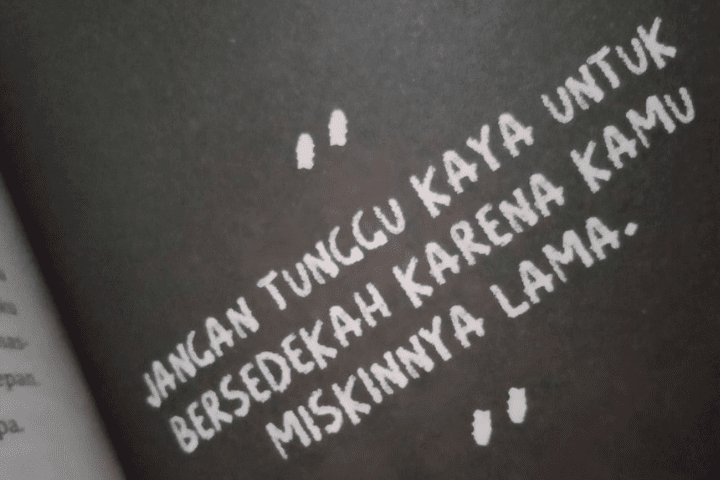 "
JANGAN TUNGGU KAYA UNTUK
BERSEDEKAH KARENA KAMU
MISKINNYA LAMA.
"
epan.
pa.